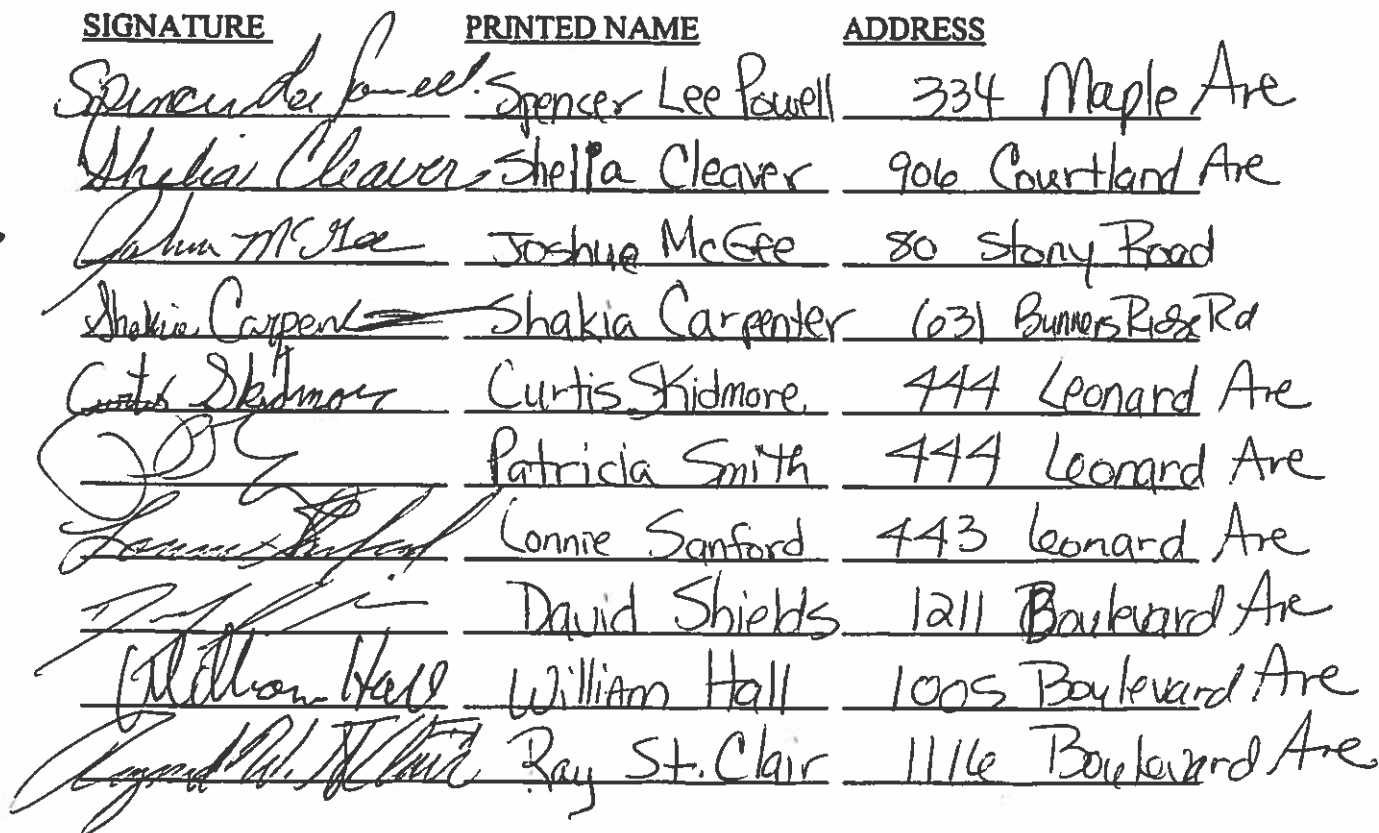 SIGNATURE PRINTED NAME ADDRESS
Spencer Lee Powell Spencer Lee Powell 334 Maple Ave
Shelia Cleaver Shelia Cleaver 906 Courtland Ave
Joshua McGee Joshua McGee 80 Stony Road
Shakia Carpent Shakia Carpenter 1631 Bunners Ridge Rd
Curtis Skidmore Curtis Skidmore 444 Leonard Ave
Patricia Smith 444 Leonard Ave
Lonnie Sanford Lonnie Sanford 443 Leonard Ave
David Shields 1211 Boulevard Ave
William Hall William Hall 1005 Boulevard Ave
St. Clair Ray St. Clair 1116 Boulevard Ave